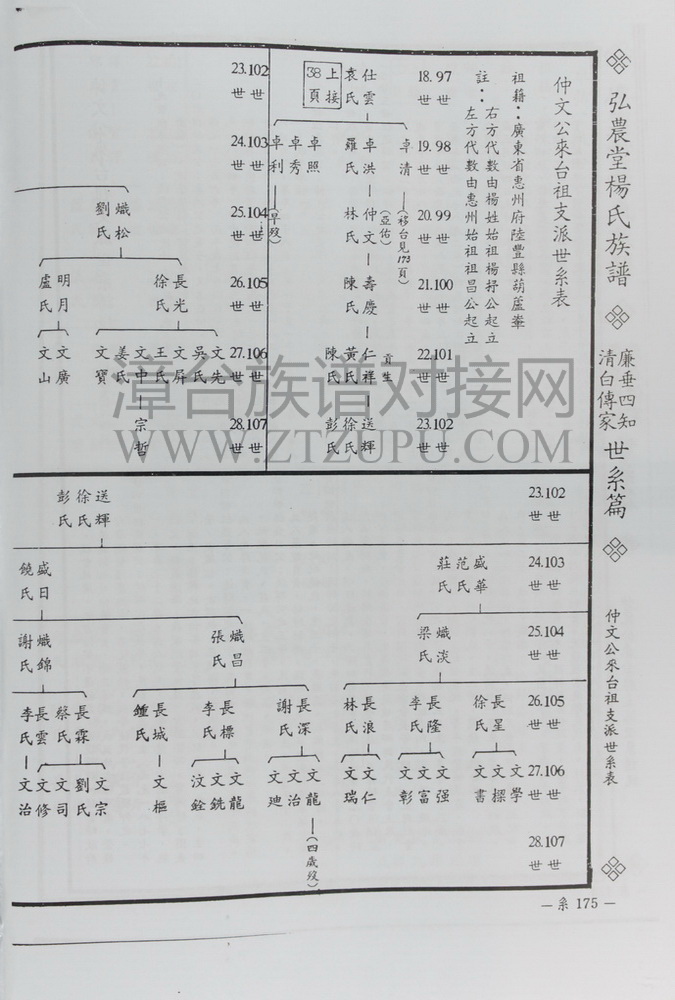 弘農堂楊氏族譜
廉垂四知
清白傳家
世系篇
仲文公來台祖支派世系表
仲文公來台祖支派世系表
祖籍：廣東省惠州府陸豐縣葫蘆峯
註：右方代數由楊姓始祖楊抒公起立
左方代數由惠州始祖祖昌公起立
18.97
世世
19.98
世世
20.99
世世
21.100
世世
22.101
世世
23.102
世世
上接38頁
仕雲
袁氏
卓清
(移台見173頁)
卓洪
羅氏
卓照
卓秀
卓利
(早歿)
仲文
(亞佑)
林氏
壽慶
陳氏
貢生
仁祥
黃氏
陳氏
送輝
徐氏
彭氏
23.102
世世
24.103
世世
25.104
世世
26.105
世世
27.106
世世
28.107
世世
熾松
劉氏
長光
徐氏
明月
盧氏
文先
吳氏
文屏
王氏
文中
姜氏
文寶
文廣
文山
宗哲
23.102
世世
24.103
世世
25.104
世世
26.105
世世
27.106
世世
28.107
世世
送輝
徐氏
彭氏
盛華
范氏
莊氏
盛日
饒氏
熾淡
梁氏
熾昌
張氏
熾錦
謝氏
長星
徐氏
長隆
李氏
長浪
林氏
長深
謝氏
長標
李氏
長城
鍾氏
長霖
蔡氏
長雲
李氏
文學
文探
文書
文强
文富
文彰
文仁
文瑞
文龍
(四歲歿)
文治
文廸
文龍
文銑
汶銓
文樞
文宗
劉氏
文司
文修
文治
漳台族谱对接网
WWW.ZTZUPU.COM
—系 175—